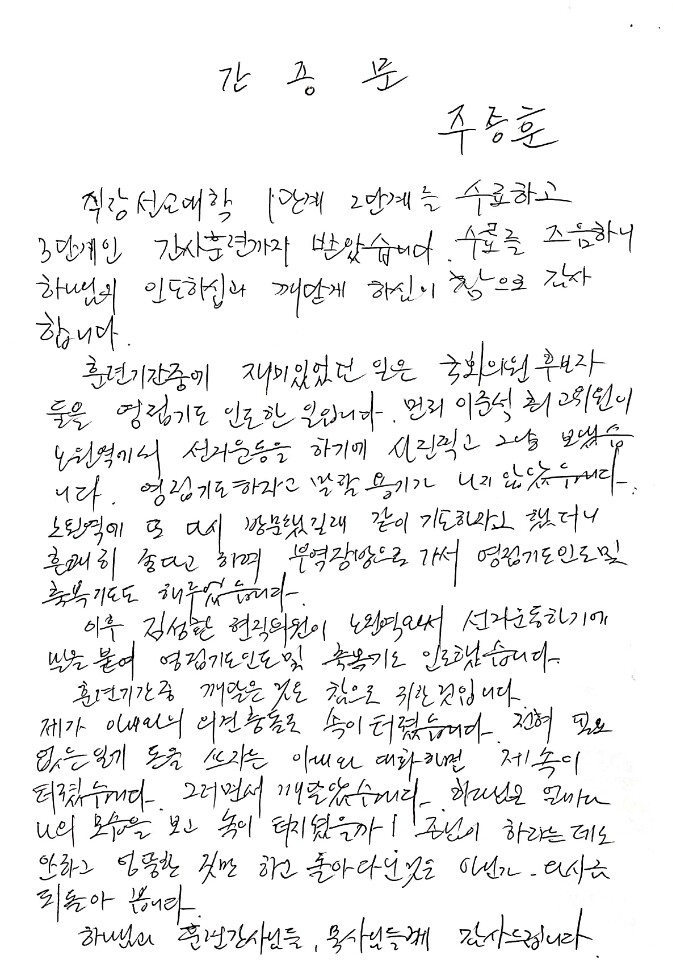 간 증 문
주종훈
직장선교대학 1단계 2단계를 수료하고
3단계인 간사훈련까지 받았습니다. 수료를 즈음하니
하나님의 인도하심과 깨닫게 하심이 참으로 감사
합니다.
훈련기간중에 재미있었던 일은 국회의원 후보자
들을 영접기도 인도한 일입니다. 먼저 이준석 최고위원이
노원역에서 선거운동을 하기에 사진찍고 그냥 보냈습
니다. 영접기도하자고 말할 용기가 나지 않았습니다.
노원역에 또 다시 방문했길래 같이 기도하자고 했더니
흔쾌히 좋다고 하며 부역광장으로 가서 영접기도인도 및
축복기도도 해주었습니다.
이후 김성환 현직의원이 노원역와서 선거운동하기에
말을 붙여 영접기도인도 및 축복기도 인도했습니다.
훈련기간중 깨달은 것은 참으로 귀한것입니다.
제가 아내와의 의견충돌로 속이 터졌습니다. 전혀 필요
없는 일게 돈을 쓰자는 아내와 대화하면 제 속이
터졌습니다. 그러면서 깨달았습니다. 하나님은 얼마나
나의 모습을 보고 속이 터지셨을까! 주님이 하라는 데로
안하고 엉뚱한 짓만 하고 돌아다닌것은 아닌가. 다시금
되돌아 봅니다.
하나님과 훈련간사님들, 목사님들께 감사드립니다.